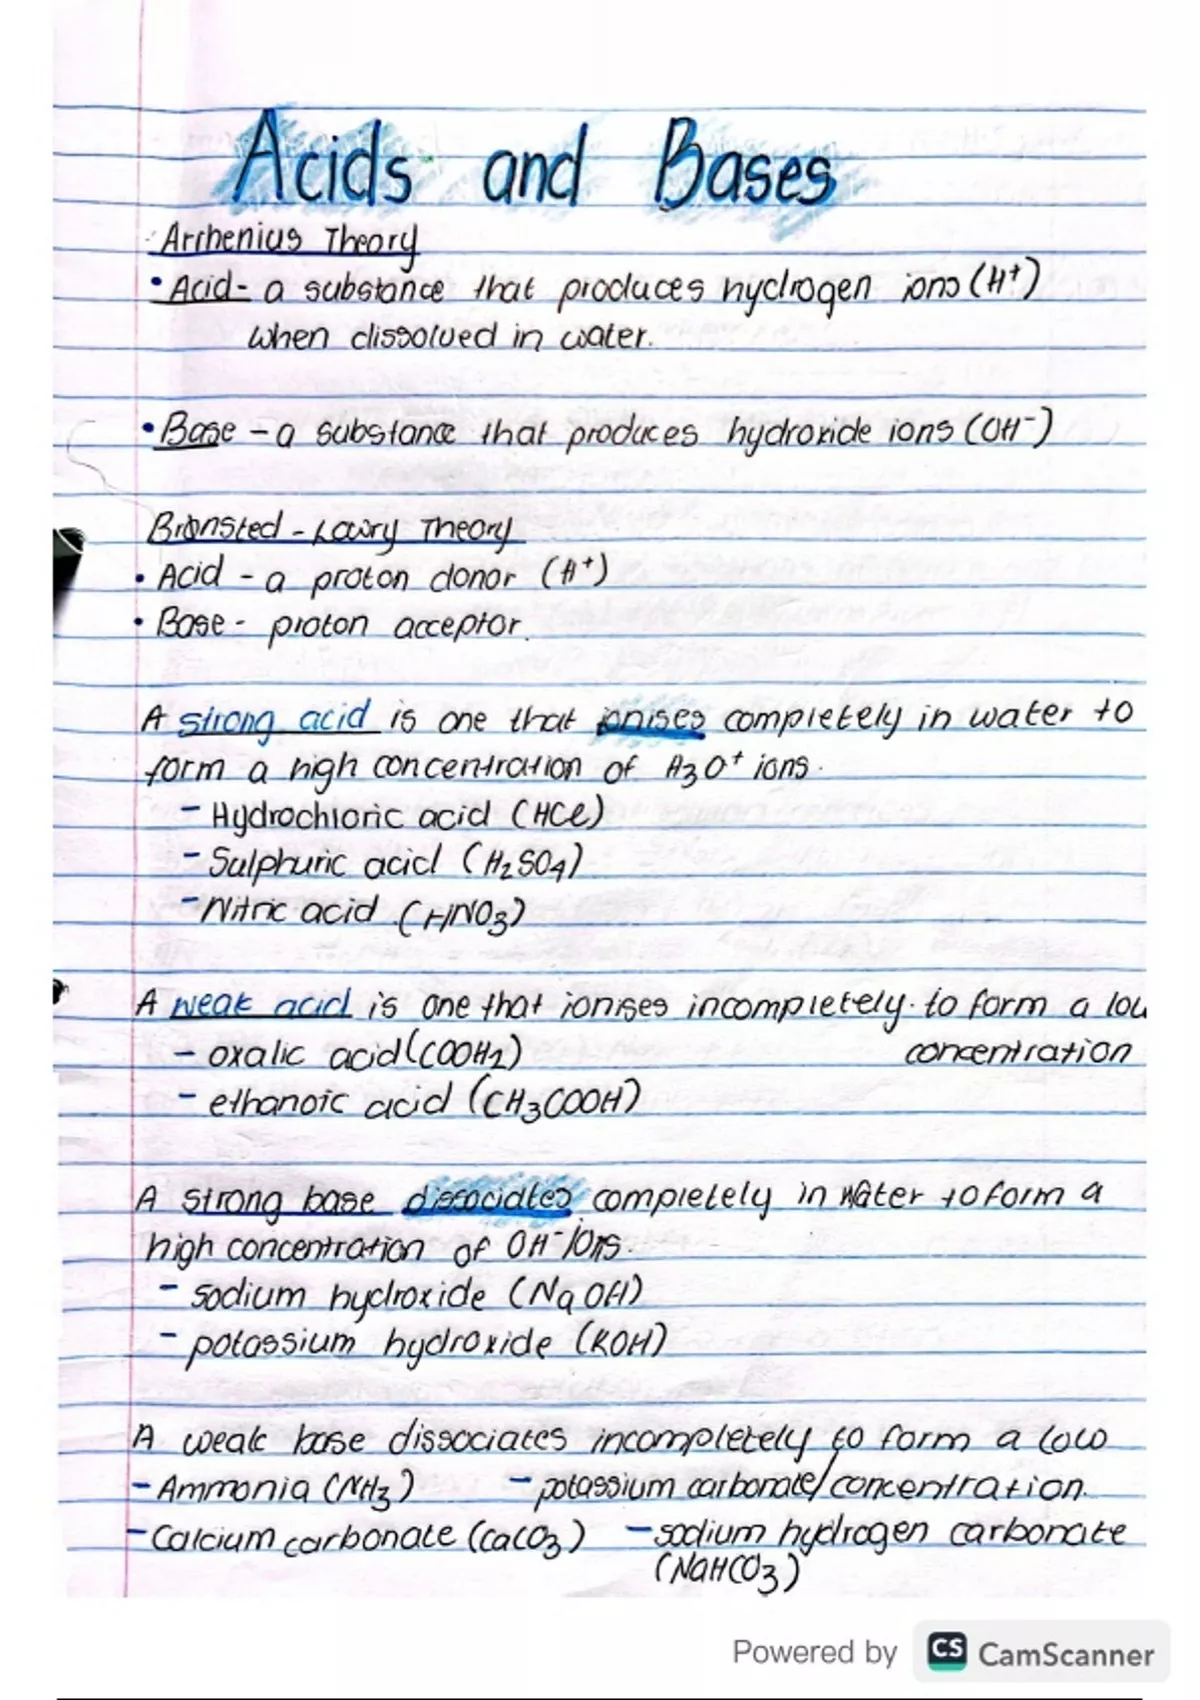 Acids and Bases
Arrhenius Theory
• Acid - a substance that produces hydrogen ions (H⁺)
when dissolved in water.
• Base - a substance that produces hydroxide ions (OH⁻)
Brønsted - Lowry Theory
• Acid - a proton donor (H⁺)
• Base - proton acceptor.
A strong acid is one that ionises completely in water to
form a high concentration of H₃O⁺ ions.
- Hydrochloric acid (HCl)
- Sulphuric acid (H₂SO₄)
- Nitric acid (HNO₃)
A weak acid is one that ionises incompletely to form a low
concentration
- oxalic acid (COOH₂)
- ethanoic acid (CH₃COOH)
A strong base dissociates completely in water to form a
high concentration of OH⁻ ions.
- sodium hydroxide (NaOH)
- potassium hydroxide (KOH)
A weak base dissociates incompletely to form a low
concentration.
- Ammonia (NH₃) - potassium carbonate
- Calcium carbonate (CaCO₃) - sodium hydrogen carbonate
(NaHCO₃)
Powered by CS CamScanner